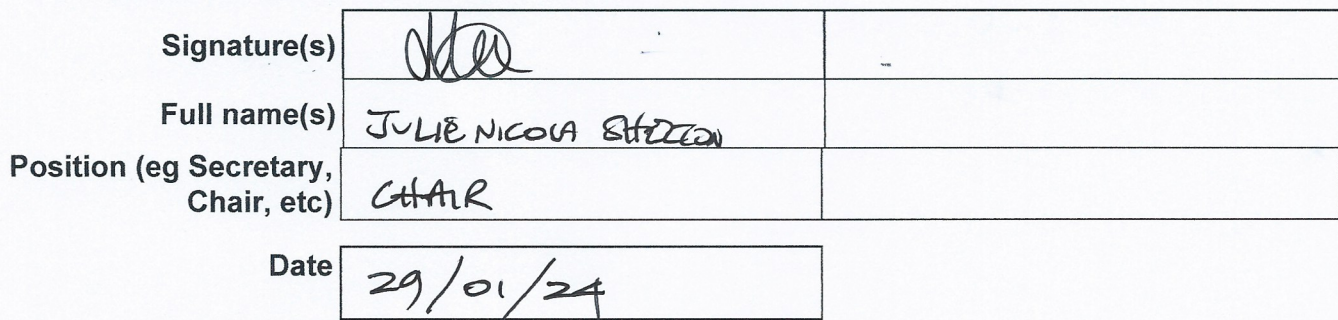 Signature(s)
Full name(s) JULIE NICOLA
Position (eg Secretary,
Chair, etc) CHAIR
Date 29/01/24